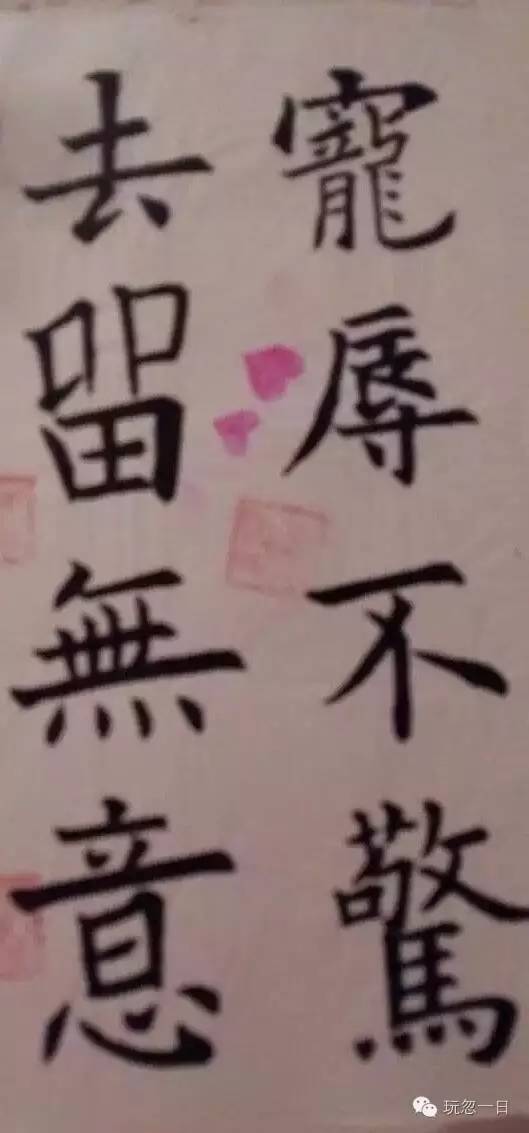 寵辱不驚
去留無意
玩忽一日